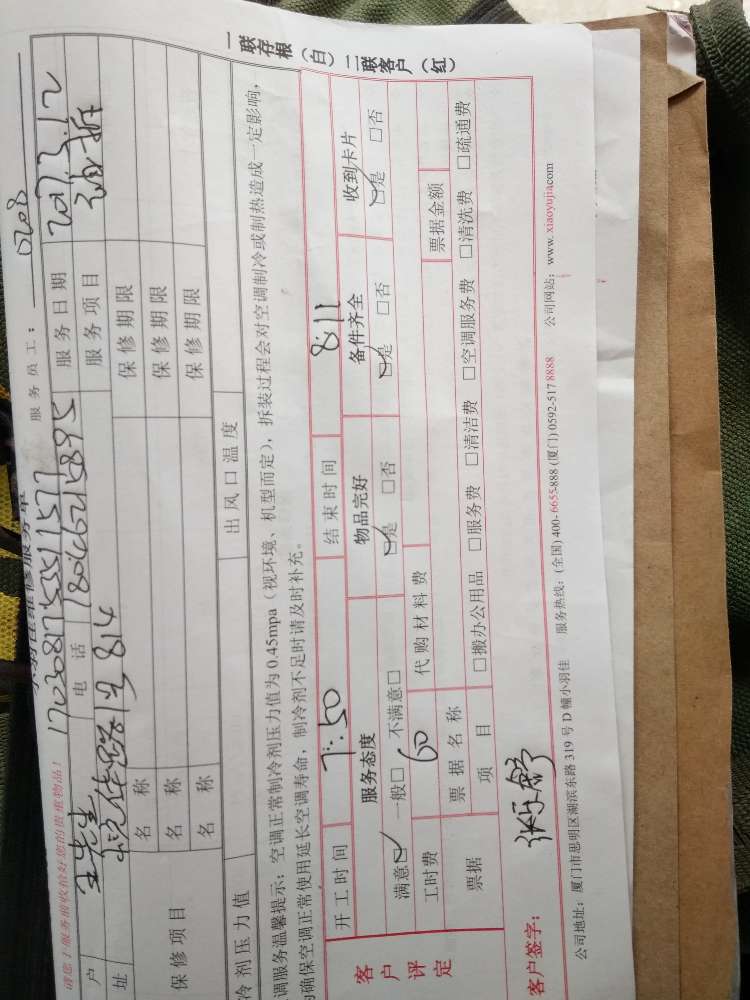 一联存根（白）二联客户（红）
请您于服务前收拾好您的贵重物品！
服务员工：0208
户 王先生 电话 18046215895 服务日期 2017.3.12
址 814 服务项目
保修项目 名称 保修期限
名称 保修期限
名称 保修期限
冷剂压力值 出风口温度
调服务温馨提示：空调正常制冷剂压力值为0.45mpa（视环境、机型而定），拆装过程会对空调制冷或制热造成一定影响，
确保空调正常使用延长空调寿命，制冷剂不足时请及时补充。
开工时间 7:50 结束时间 8:11
客户评定 服务态度 物品完好 备件齐全 收到卡片
满意☑ 一般□ 不满意□ ☑是 □否 ☑是 □否 ☑是 □否
工时费 60 代购材料费
票据 票据名称 票据金额
项目 □搬办公用品 □服务费 □清洁费 □空调服务费 □清洗费 □疏通费
客户签字：
公司地址：厦门市思明区湖滨东路319号D幢小羽佳 服务热线：(全国) 400-6655-888 (厦门) 0592-517 8888 公司网站：www. xiaoyujia.com